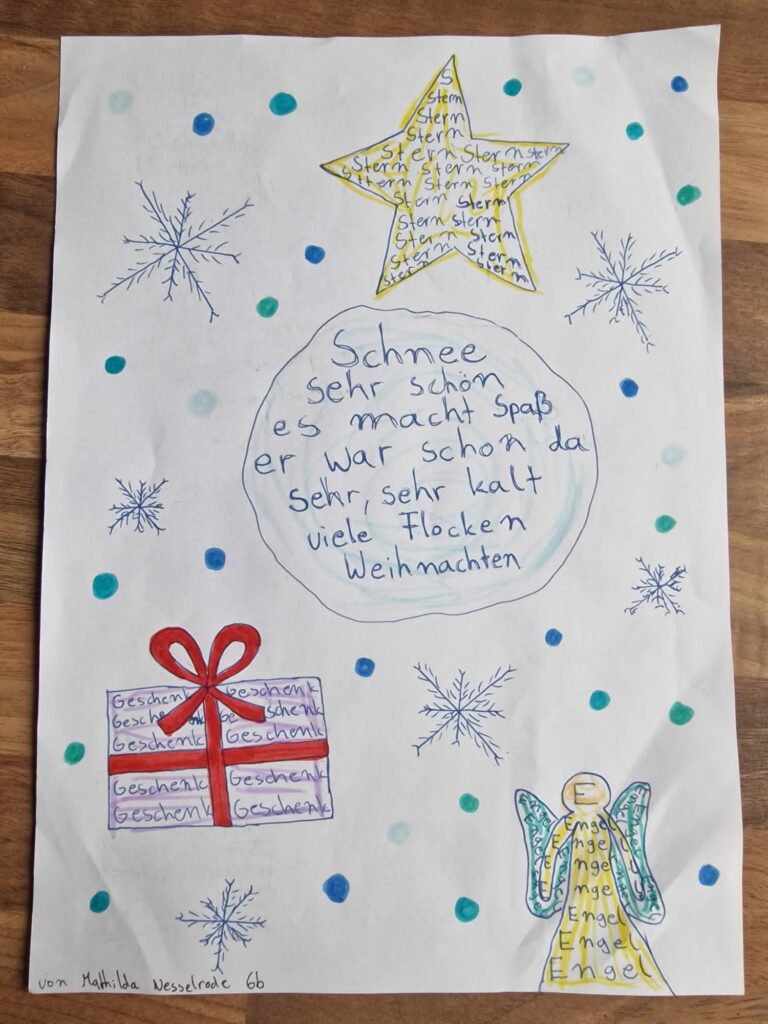 S
Stern
Stern
Stern
Stern Stern Stern
Stern Stern Stern
Sttern Stern Stern
Stern Stern
Stern Stern
Stern Stern
Stern Stern
Stern Stern
Schnee
sehr schön
es macht Spaß
er war schon da
sehr, sehr kalt
viele Flocken
Weihnachten
Geschenk Geschenk
Geschenk Geschenk
Geschenk Geschenk
Geschenk Geschenk
Geschenk Geschenk
E
Engel
Engel
Engel
Engel
Engel
Engel
Engel
von Mathilda Nesselrode 6b